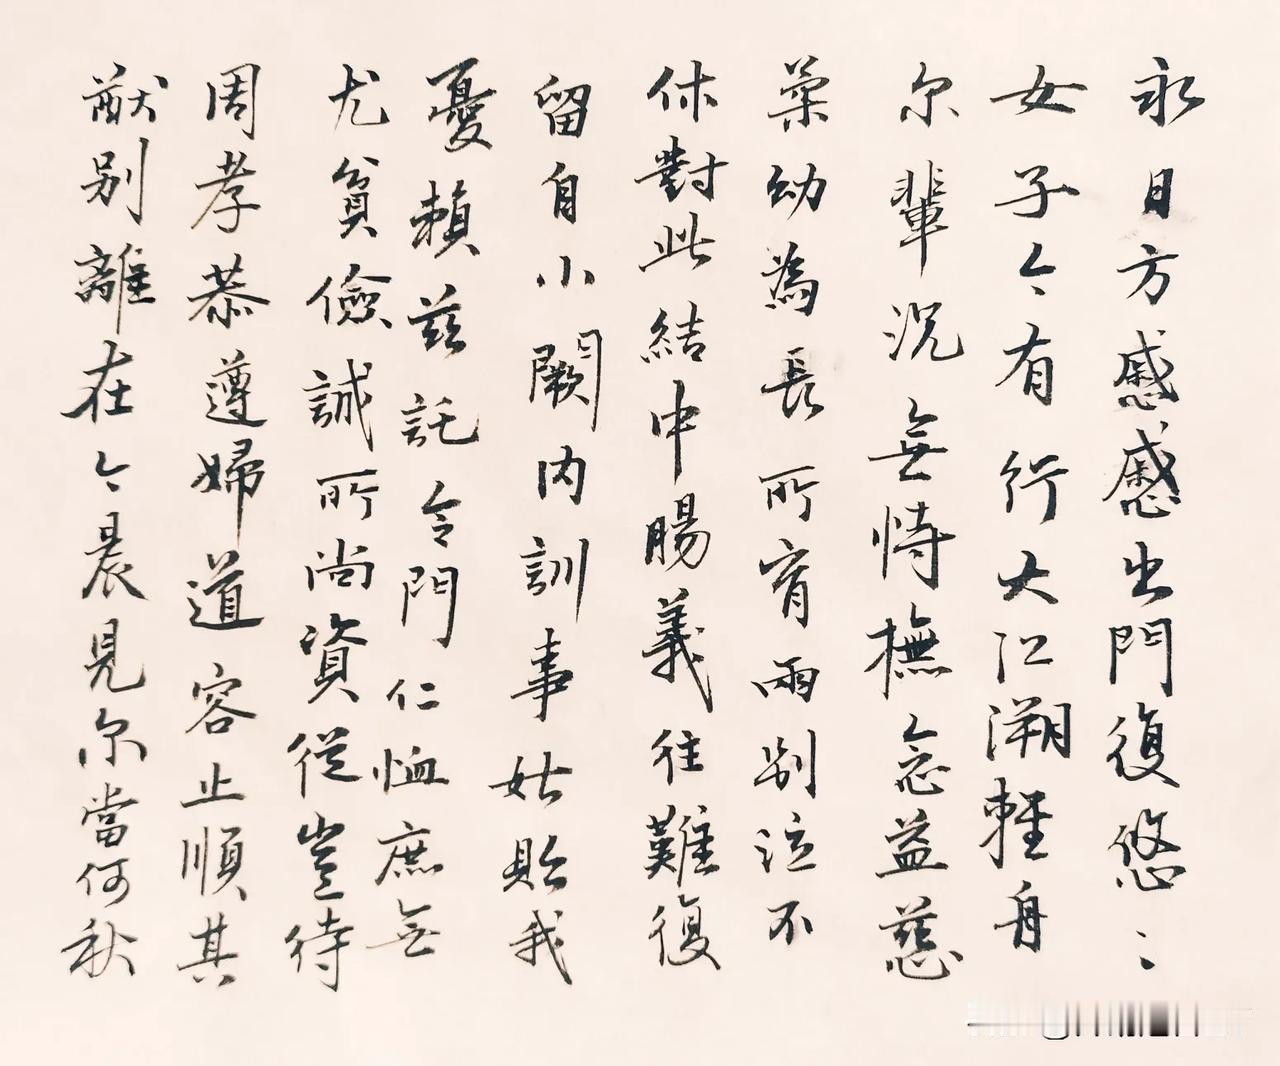 永日方慼慼出門復悠〻
女子今有行大江溯輕舟
尔輩況無恃撫念益慈
柔幼為長所育兩別泣不
休對此結中腸義往難復
留自小闕内訓事姑貽我
憂賴兹託令門仁恤庶無
尤貧儉誠所尚資從豈待
周孝恭遵婦道容止順其
猷别離在今晨見尔當何秋